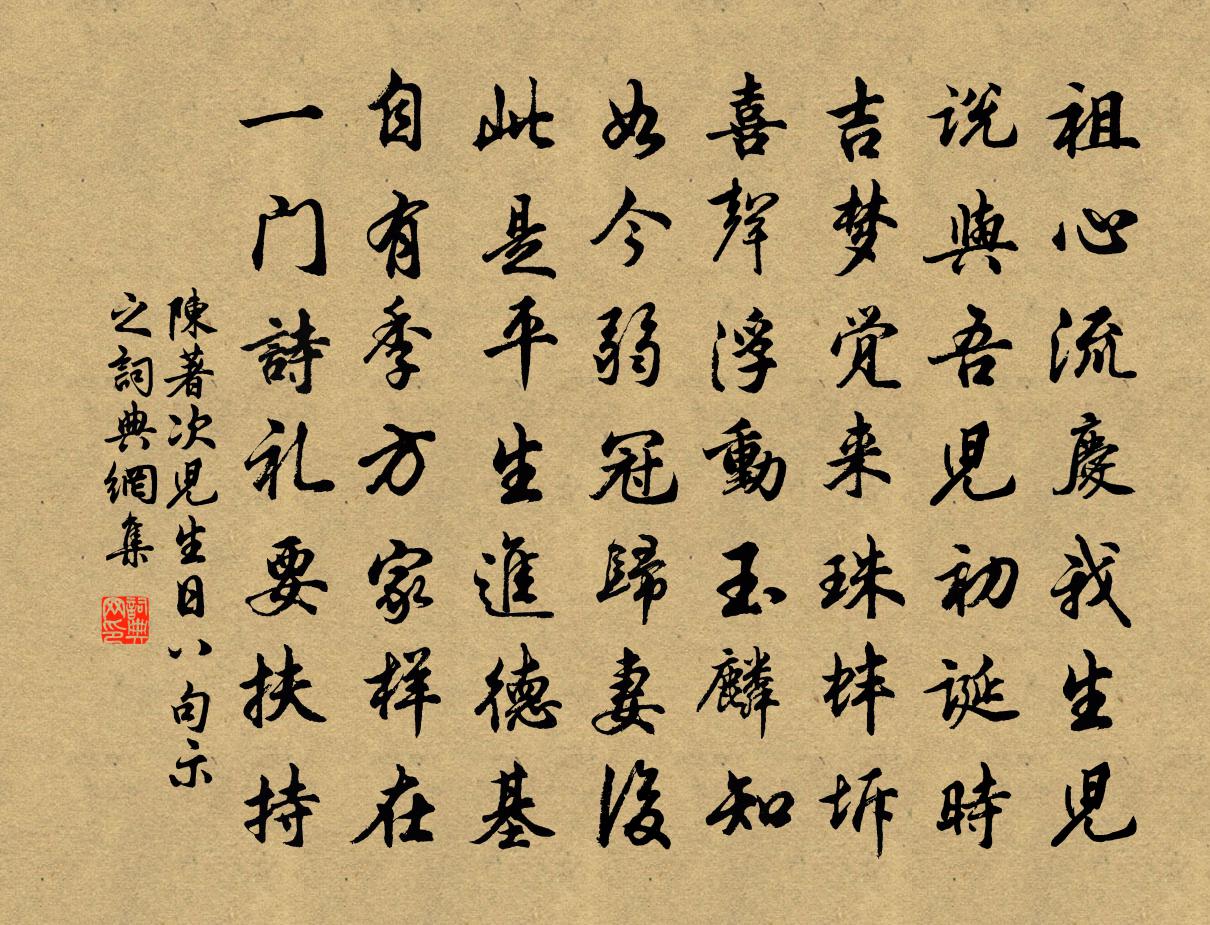 祖心流慶我生児
说與吾児初誕時
吉梦觉来珠蚌坼
喜聲浮動玉麟知
如今弱冠歸妻後
此是平生進德基
自有季方家样在
一门詩礼要扶持
陳著次児生日八句示
之詞典網集
詞典网印